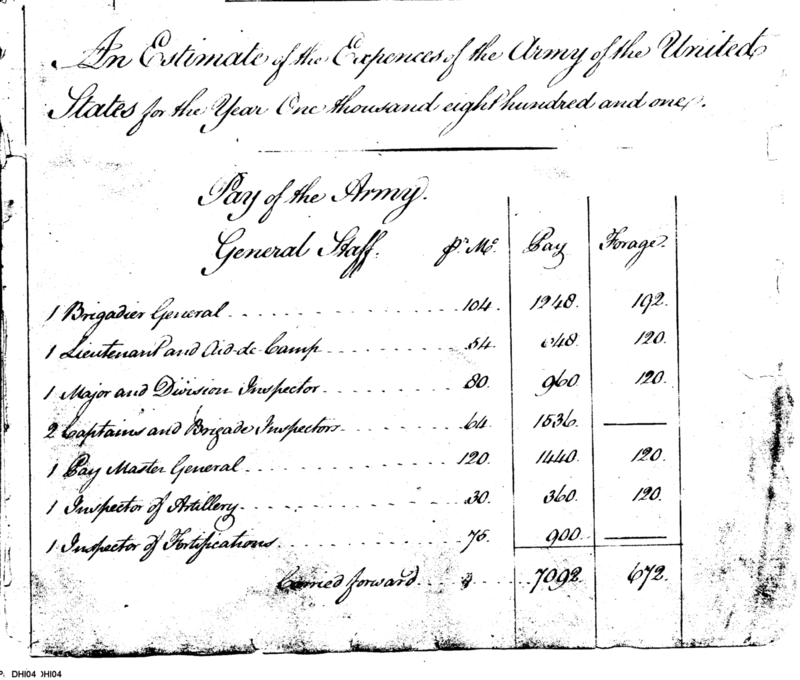 An Estimate of the Expences of the Army of the United
States for the Year One thousand eight hundred and one.
Pay of the Army.
General Staff. pr. Mo. Pay Forage.
1 Brigadier General 104. 1248. 192.
1 Lieutenant and Aid-de-Camp 54. 648. 120.
1 Major and Division Inspector 80. 960. 120.
2 Captains and Brigade Inspectors 64. 1536. ——
1 Pay Master General 120. 1440. 120.
1 Inspector of Artillery 30. 360. 120.
1 Inspector of Fortifications 75. 900. ——
Carried forward 7092. 672.
DHI04